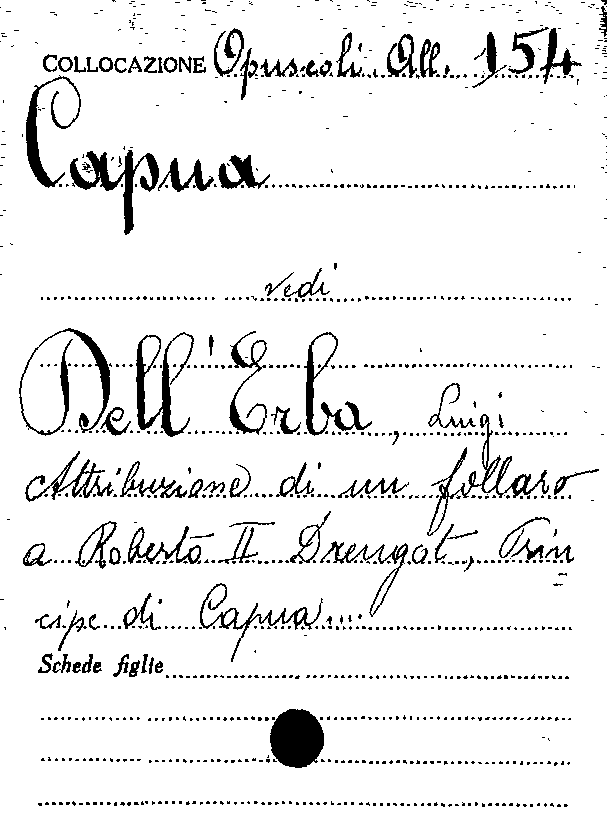 COLLOCAZIONE Opuscoli. All. 154
Capua
vedi
Dell'Erba, Luigi
Attribuzione di un follaro
a Roberto II Drengot, Prin
cipe di Capua....
Schede figlie